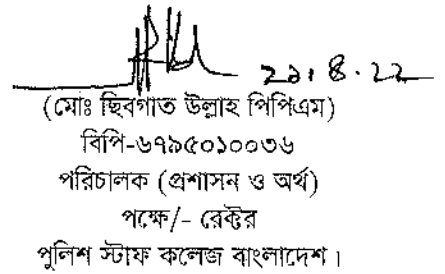 ২১.৪.২২
(মোঃ ছিবগাত উল্লাহ পিপিএম)
বিপি-৬৭৯৫০১০০৩৬
পরিচালক (প্রশাসন ও অর্থ)
পক্ষে/- রেক্টর
পুলিশ স্টাফ কলেজ বাংলাদেশ।